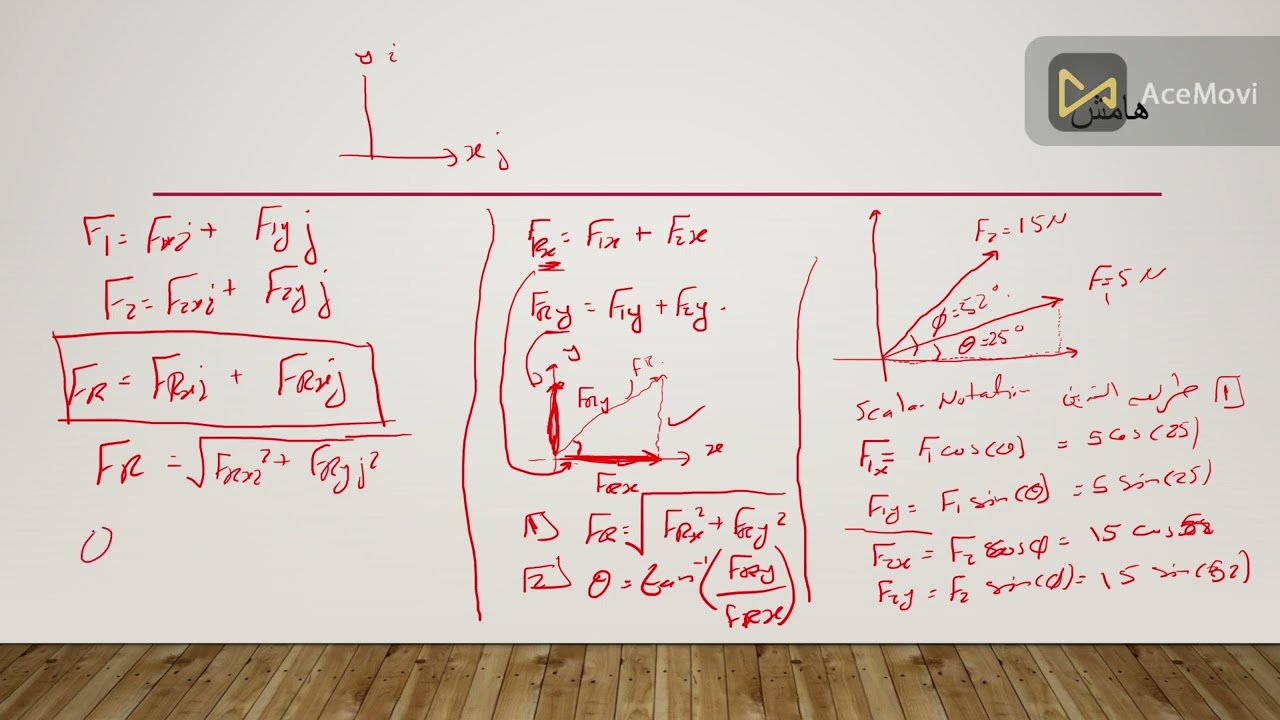 AceMovi
هامش
y i
x j
F₁ = F₁ₓi + F₁y j
F₂ = F₂xi + F₂y j
FR = FRxi + FRxj
FR = √FRxi² + FRyj²
FRx = F₁x + F₂x
FRy = F₁y + F₂y.
y
FR
FRy
x
FRx
1 FR = √FRx² + FRy²
2 θ = tan⁻¹(FRy/FRx)
F₂ = 15 N
F₁ = 5 N
ϕ = 52°
θ = 25°
Scalar Notation
1
F₁x = F₁ cos(θ) = 5 cos(25)
F₁y = F₁ sin(θ) = 5 sin(25)
F₂x = F₂ cos ϕ = 15 cos 52
F₂y = F₂ sin(ϕ) = 15 sin(52)